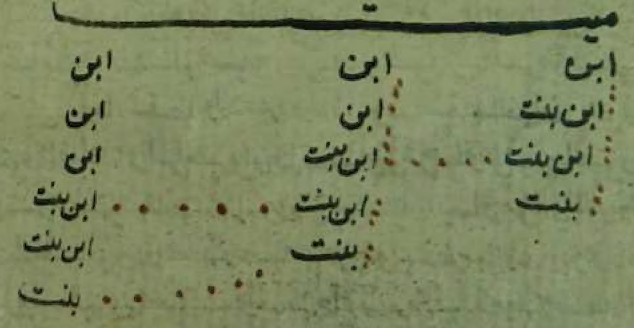 ميت
ابن ابن ابن
ابن بنت ابن ابن
ابن بنت ابن بنت ابن
بنت ابن بنت ابن بنت
بنت ابن بنت
بنت